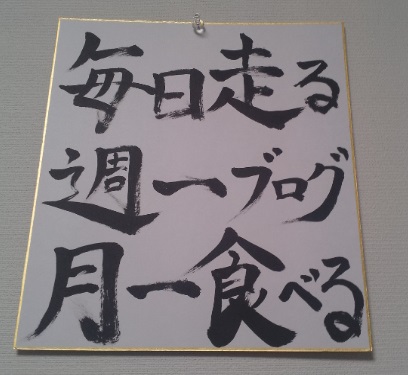 毎日走る
週一ブログ
月一食べる